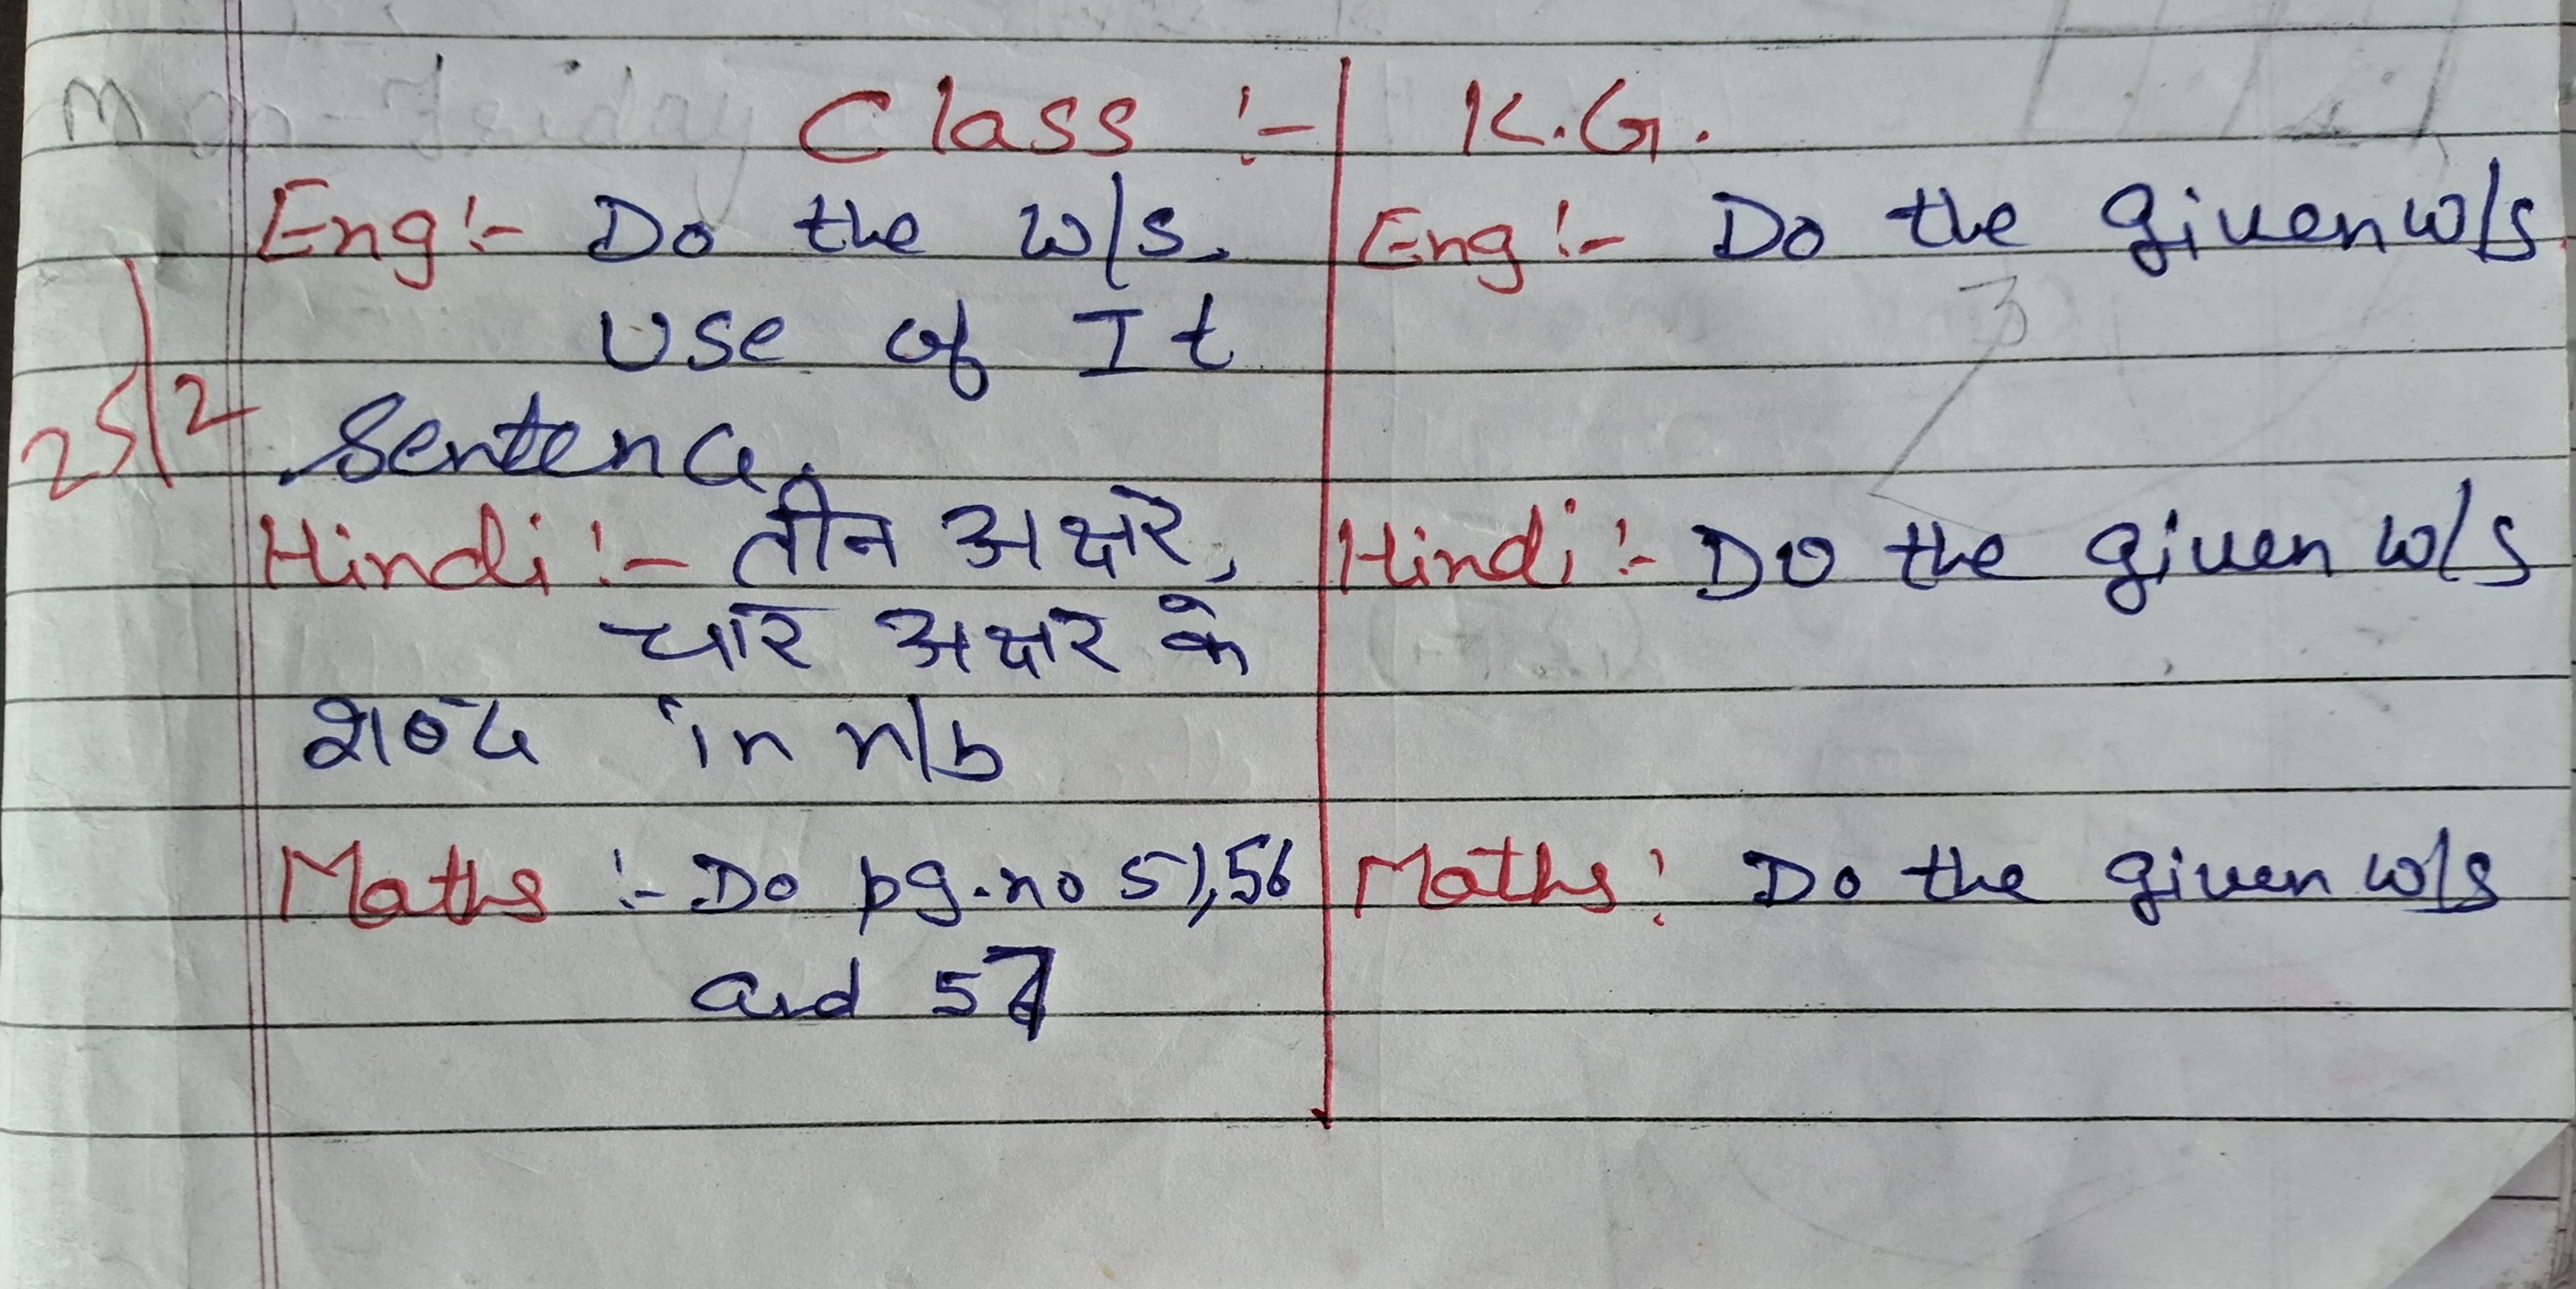 Class :- K.G.
Eng :- Do the w/s.
Use of It
Sentence.
25/2
Hindi :- तीन अक्षर,
चार अक्षर के
शब्द in n/b
Maths :- Do pg.no 51,56
and 57
Eng :- Do the given w/s.
Hindi :- Do the given w/s
Maths : Do the given w/s